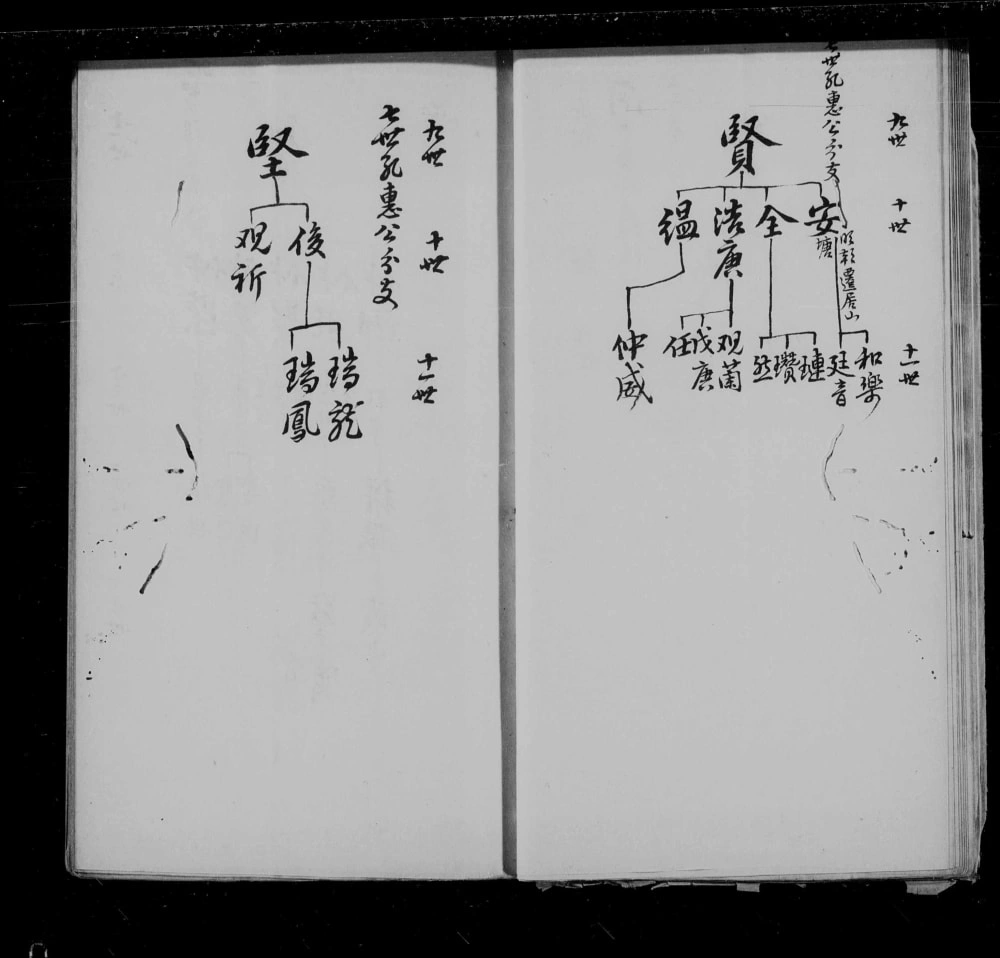 九世
十世
十一世
七世孔惠公分支
賢
安
全
浩庚
緼
遷居山
塘
和樂
廷音
璉
瓚
观蘭
戊庚
任
仲威
九世
十世
十一世
七世孔惠公分支
堅
俊
观祈
瑞龍
瑞鳳